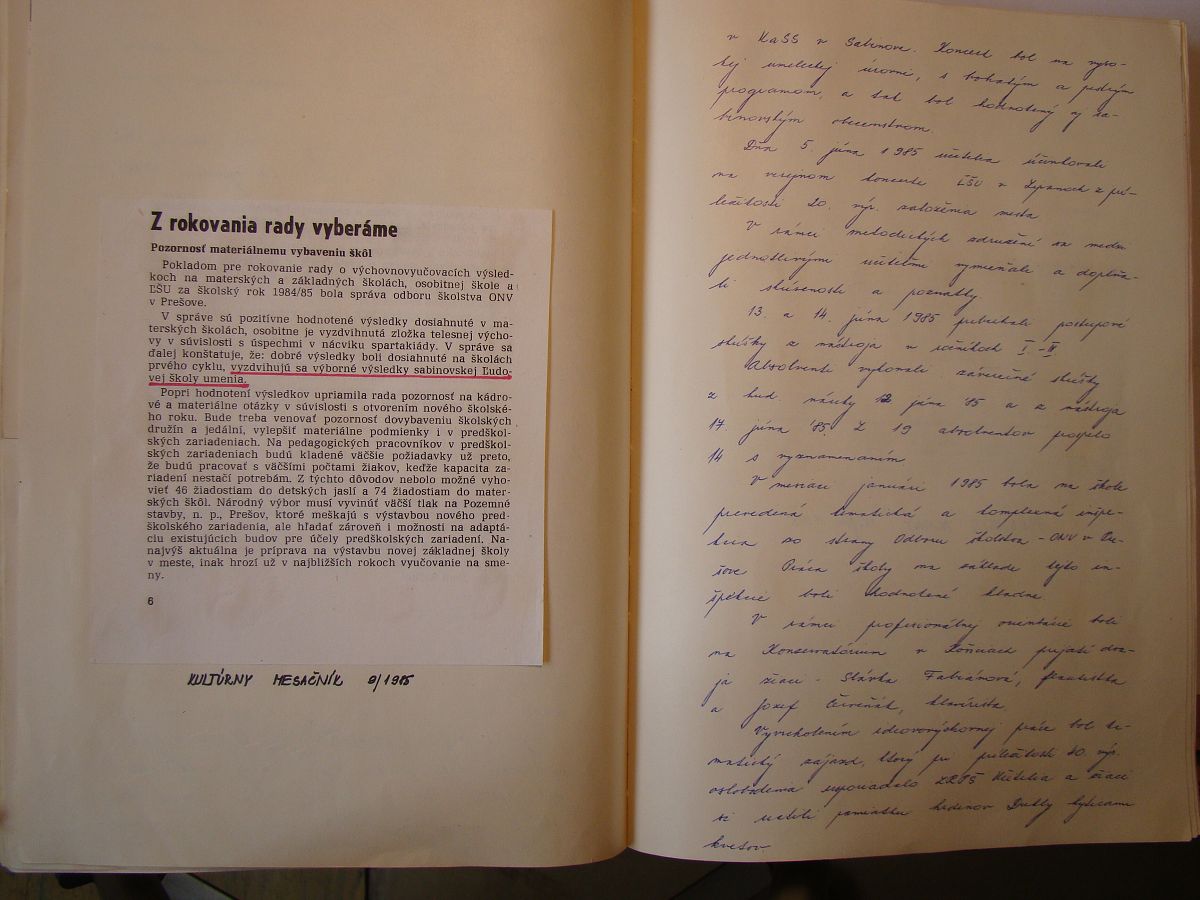 Z rokovania rady vyberáme
Pozornosť materiálnemu vybaveniu škôl
Pokladom pre rokovanie rady o výchovnovyučovacích výsled-
koch na materských a základných školách, osobitnej škole a
ĽŠU za školský rok 1984/85 bola správa odboru školstva ONV
v Prešove.
V správe sú pozitívne hodnotené výsledky dosiahnuté v ma-
terských školách, osobitne je vyzdvihnutá zložka telesnej výcho-
vy v súvislosti s úspechmi v nácviku spartakiády. V správe sa
ďalej konštatuje, že: dobré výsledky boli dosiahnuté na školách
prvého cyklu, vyzdvihujú sa výborné výsledky sabinovskej Ľudo-
vej školy umenia.
Popri hodnotení výsledkov upriamila rada pozornosť na kádro-
vé a materiálne otázky v súvislosti s otvorením nového školské-
ho roku. Bude treba venovať pozornosť dovybaveniu školských
družín a jedální, vylepšiť materiálne podmienky i v predškol-
ských zariadeniach. Na pedagogických pracovníkov v predškol-
ských zariadeniach budú kladené väčšie požiadavky už preto,
že budú pracovať s väčšími počtami žiakov, keďže kapacita za-
riadení nestačí potrebám. Z týchto dôvodov nebolo možné vyho-
vieť 46 žiadostiam do detských jaslí a 74 žiadostiam do mater-
ských škôl. Národný výbor musí vyvinúť väčší tlak na Pozemné
stavby, n. p., Prešov, ktoré meškajú s výstavbou nového pred-
školského zariadenia, ale hľadať zároveň i možnosti na adaptá-
ciu existujúcich budov pre účely predškolských zariadení. Na-
najvýš aktuálna je príprava na výstavbu novej základnej školy
v meste, inak hrozí už v najbližších rokoch vyučovanie na sme-
ny.
6
KULTÚRNY MESAČNÍK 9/1985
v KaSS v Sabinove. Koncert bol na vyso-
kej umeleckej úrovni, s bohatým a pestrým
programom, a tak bol hodnotený aj sa-
binovským obecenstvom.
Dňa 5. júna 1985 učitelia účinkovali
na verejnom koncerte ĽŠU v Lipanoch z prí-
ležitosti 20. výr. založenia mesta
V rámci metodických združení sa medzi
jednotlivými učiteľmi vymieňali a dopĺňa-
li skúsenosti a poznatky.
13. a 14. júna 1985 prebiehali postupové
skúšky z nástroja v ročníkoch I. - II
Absolventi vykonali záverečné skúšky
z hud. náuky 12 júna '85 a z nástroja
17. júna '85. Z 19 absolventov prospelo
14 s vyznamenaním
V mesiaci januári 1985 bola na škole
prevedená tematická a komplexná inšpe-
kcia zo strany Odboru školstva - ONV v Pre-
šove Práca školy na základe tejto in-
špekcie boli hodnotené kladne.
V rámci profesionálnej orientácie boli
na Konzervatórium v Košiciach prijatí dva-
ja žiaci - Slávka Fabiánová, flautistka
a Jozef Červeňák, klavirista
Vyvrcholením ideovovýchovnej práce bol te-
matický zájazd, ktorý pri príležitosti 40. výr.
oslobodenia usporiadalo ZRPŠ Učitelia a žiaci
si uctili pamiatku hrdinov Dukly kyticami
kvetov.